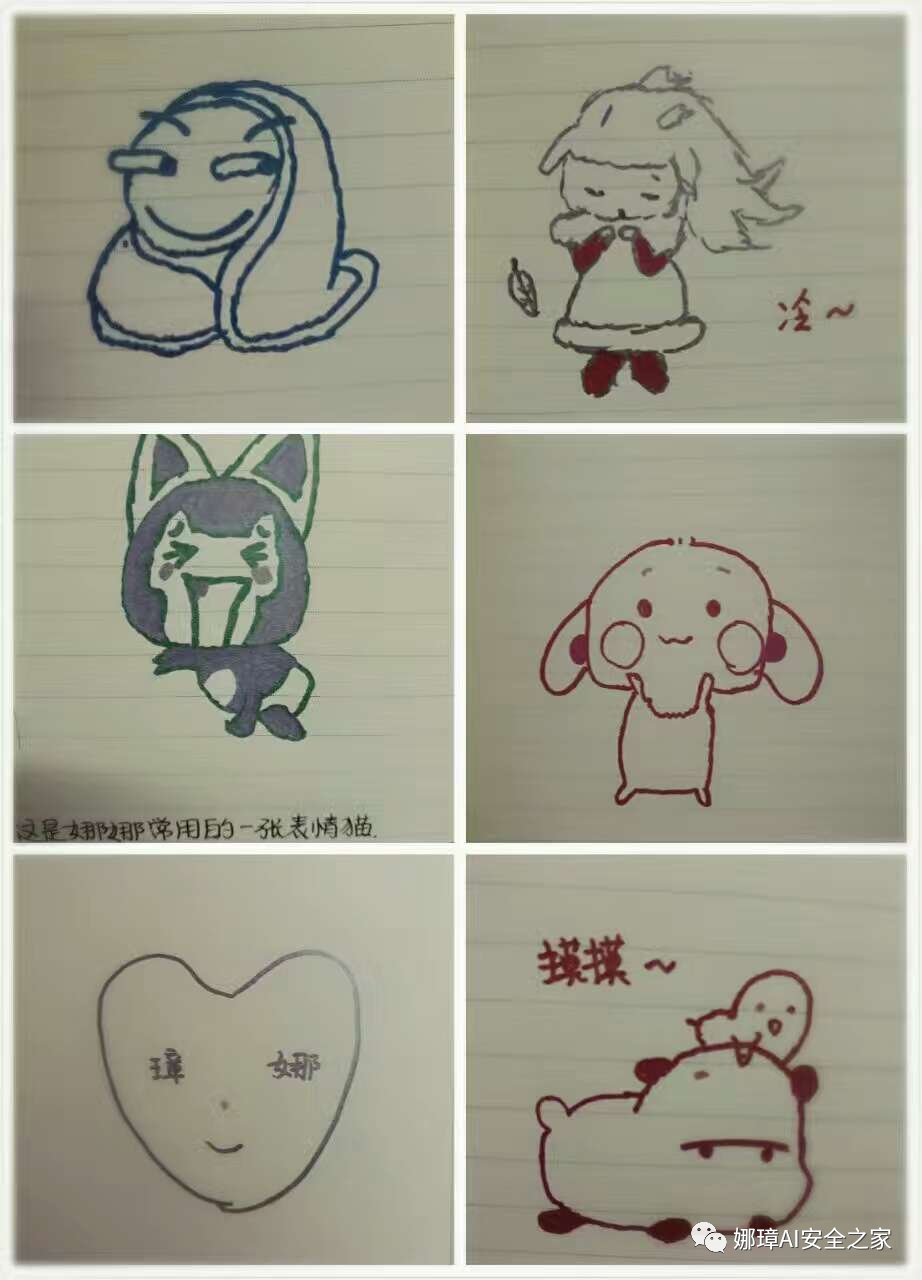 冷~
这是娜娜常用的一张表情猫.
璋 娜
摸摸~
娜璋AI安全之家